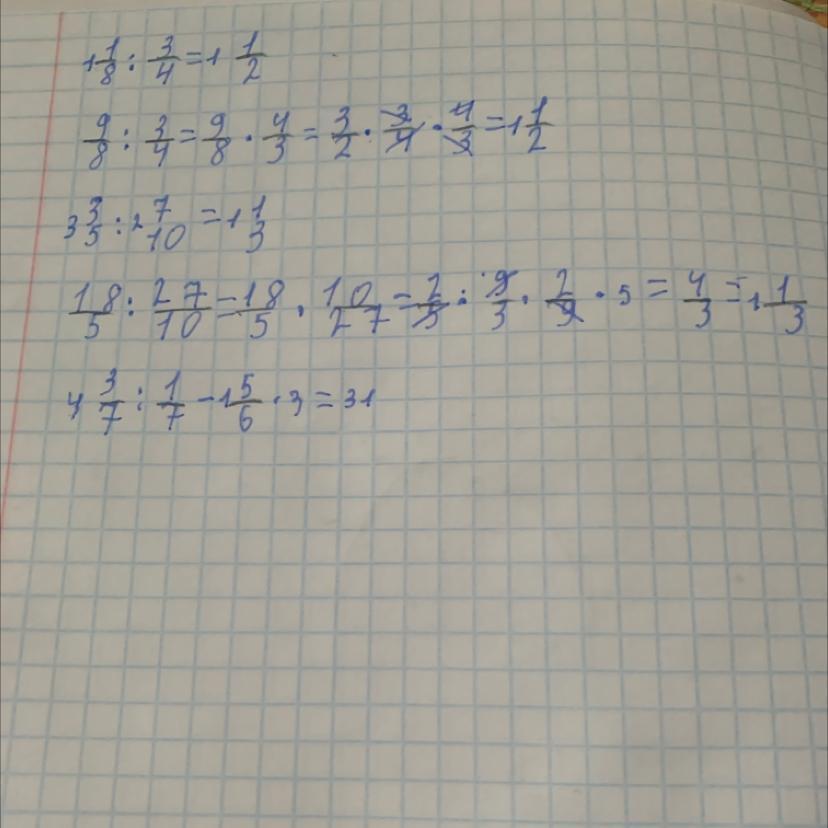 1 1/8 : 3/4 = 1 1/2
9/8 : 3/4 = 9/8 · 4/3 = 3/2 · 3/4 · 4/3 = 1 1/2
3 3/5 : 2 7/10 = 1 1/3
18/5 : 27/10 = 18/5 · 10/27 = 2/5 · 9/3 · 2/9 · 5 = 4/3 = 1 1/3
4 3/7 : 1/7 - 1 5/6 · 3 = 31